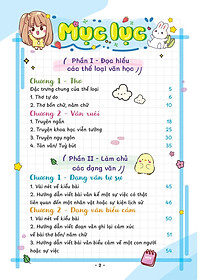 Mục lục
Phần I - Đọc hiểu
các thể loại văn học
Chương 1 - Thơ
Đặc trưng chung của thể loại 5
1. Thơ tự do 6
2. Thơ bốn chữ, năm chữ
Chương 2 - Văn xuôi
1. Truyện ngắn 18
2. Truyện khoa học viễn tưởng 25
3. Truyện ngụ ngôn 30
4. Tản văn/ Tuỳ bút 35
Phần II - Làm chủ
các dạng văn
Chương 1 - Dạng văn tự sự
1. Vài nét về kiểu bài 45
2. Hướng dẫn viết bài văn kể một sự việc có thật
liên quan đến một nhân vật hoặc sự kiện lịch sử 46
Chương 2 - Dạng văn biểu cảm
1. Vài nét về kiểu bài 50
2. Hướng dẫn viết đoạn văn ghi lại cảm xúc
về bài thơ bốn/ năm chữ 51
3. Hướng dẫn viết bài văn biểu cảm về một con người
hoặc sự việc 54
- 2 -